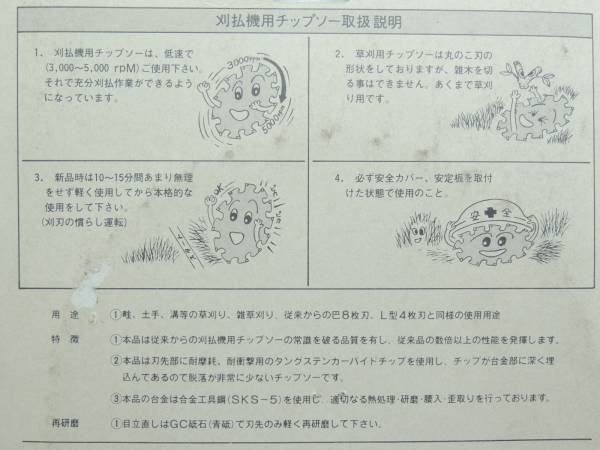 刈払機用チップソー取扱説明
1. 刈払機用チップソーは、低速で
(3,000〜5,000 rpM)ご使用下さい。
それで充分刈払作業ができるよう
になっています。
3000rpm
5000rpm
2. 草刈用チップソーは丸のこ刃の
形状をしておりますが、雑木を切
る事はできません。あくまで草刈
り用です。
3. 新品時は10〜15分間あまり無理
をせず軽く使用してから本格的な
使用をして下さい。
(刈刃の慣らし運転)
4. 必ず安全カバー、安定板を取付
けた状態で使用のこと。
安 全
用 途 ①畦、土手、溝等の草刈り、雑草刈り、従来からの巴8枚刃、L型4枚刃と同様の使用用途
特 徴 ①本品は従来からの刈払機用チップソーの常識を破る品質を有し、従来品の数倍以上の性能を発揮します。
②本品は刃先部に耐磨耗、耐衝撃用のタングステンカーバイドチップを使用し、チップが台金部に深く埋
込んてあるので脱落が非常に少ないチップソーです。
③本品の台金は合金工具鋼(SKS-5)を使用し、適切なる熱処理・研磨・腰入・歪取りを行っております。
再研磨 ①目立直しはGC砥石(青砥)て刃先のみ軽く再研磨して下さい。